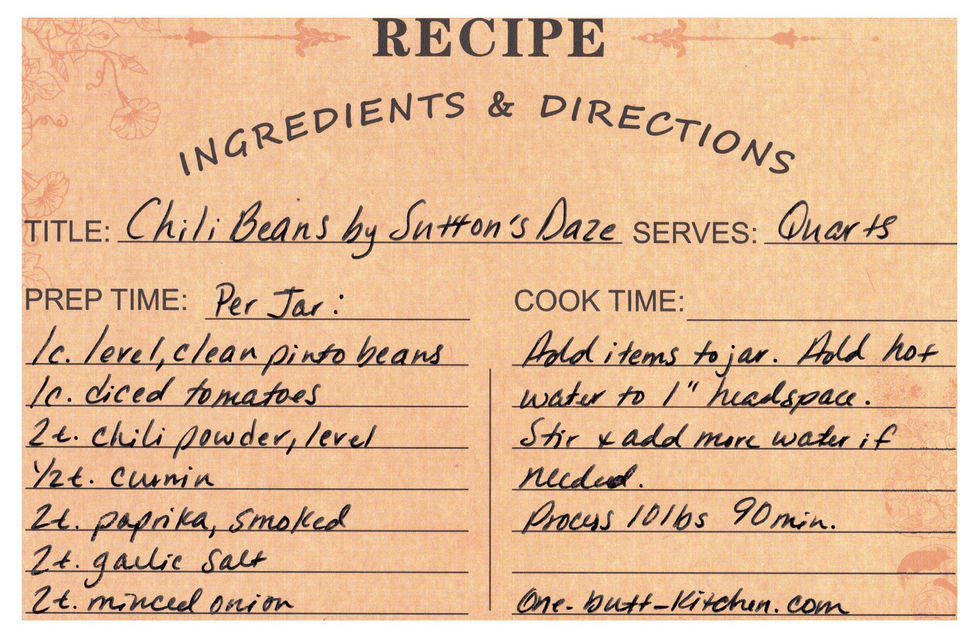 RECIPE
INGREDIENTS & DIRECTIONS
TITLE: Chili Beans by Sutton's Daze SERVES: Quarts
PREP TIME: Per Jar:
1c. level, clean pinto beans
1c. diced tomatoes
2t. chili powder, level
1/2t. cumin
2t. paprika, smoked
2t. garlic salt
2t. minced onion
COOK TIME:
Add items to jar. Add hot
water to 1" headspace.
Stir & add more water if
needed.
Process 10lbs 90min.
One-butt-Kitchen.com